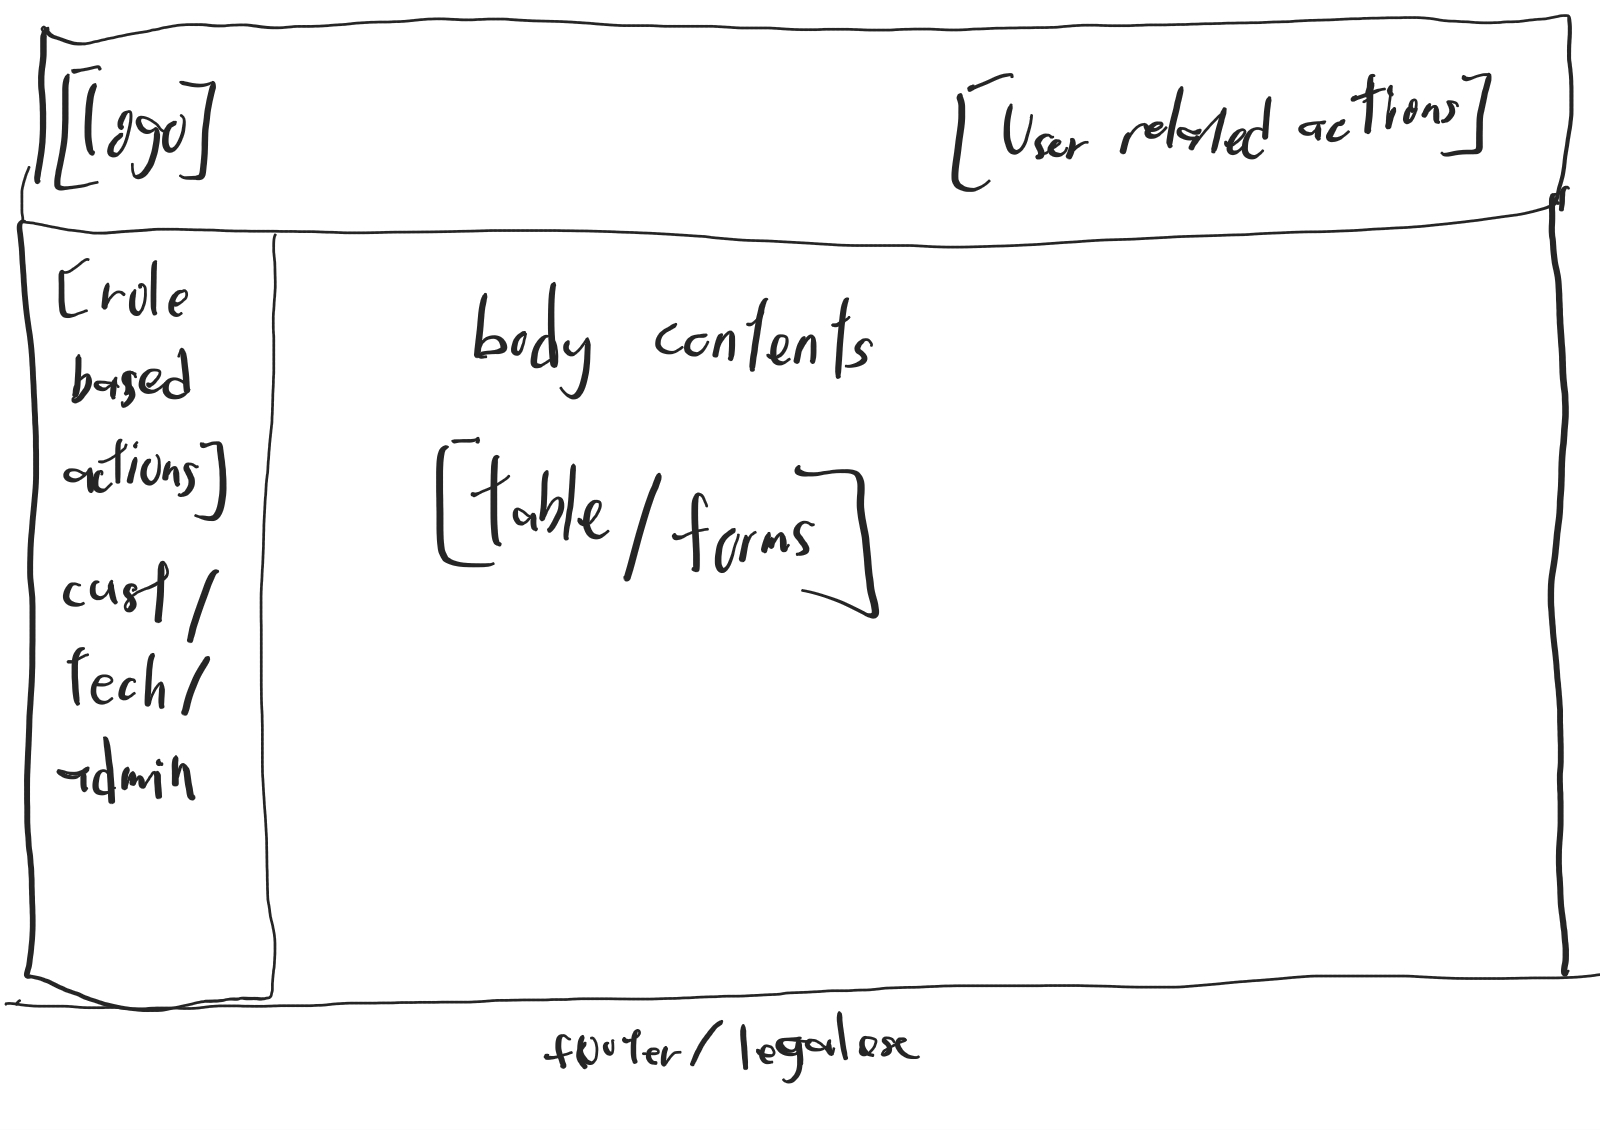 [logo]
[User related actions]
[role
based
actions]
cust/
tech/
admin
body contents
[table/forms]
footer/legalese